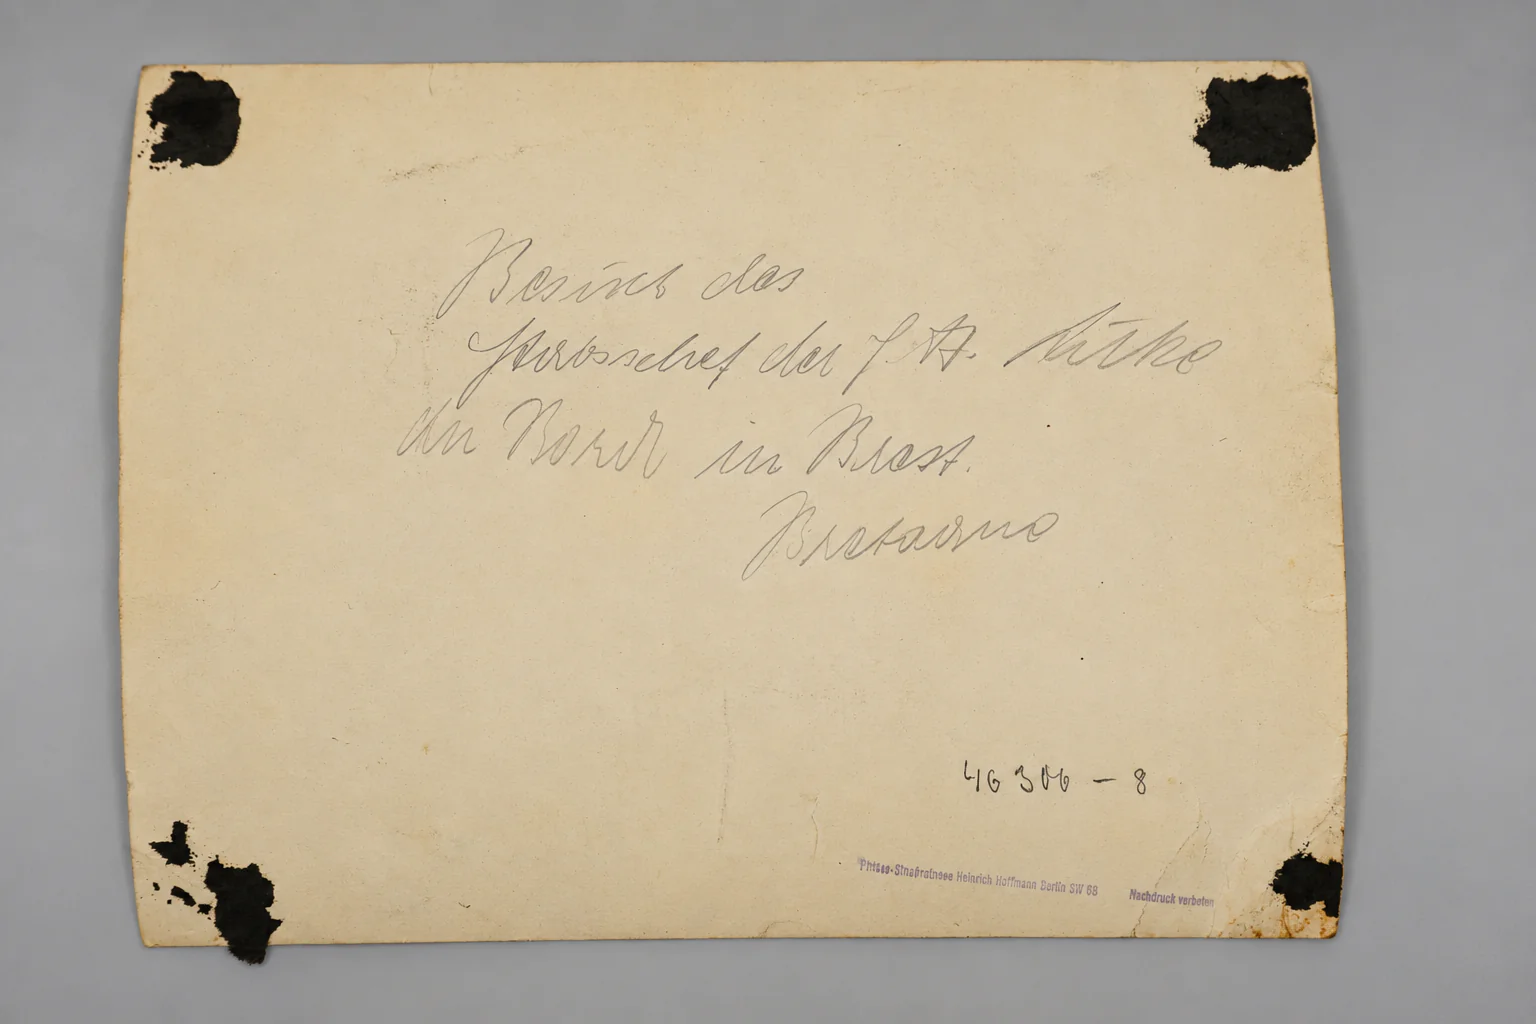 Besuch des
Stabschef der SA. Lutze
an Bord in Brest.
Bretagne
46306 – 8
Heinrich Hoffmann Berlin SW 68 Nachdruck verboten